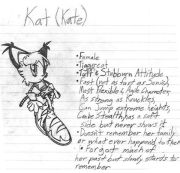 Kat (Kate)
• Female
• Tigercat
• Tuff & Stubborn Attitude
• Fast (not as fast as Sonic)
Most Flexible & Agile Character
As strong as Knuckles
Can Jump extreme heights
Can be Stealthy, has a soft
side but never shows it
• Doesn't remember her family
or what ever happened to them
• Forgot much of
her past but slowly starts to
remember